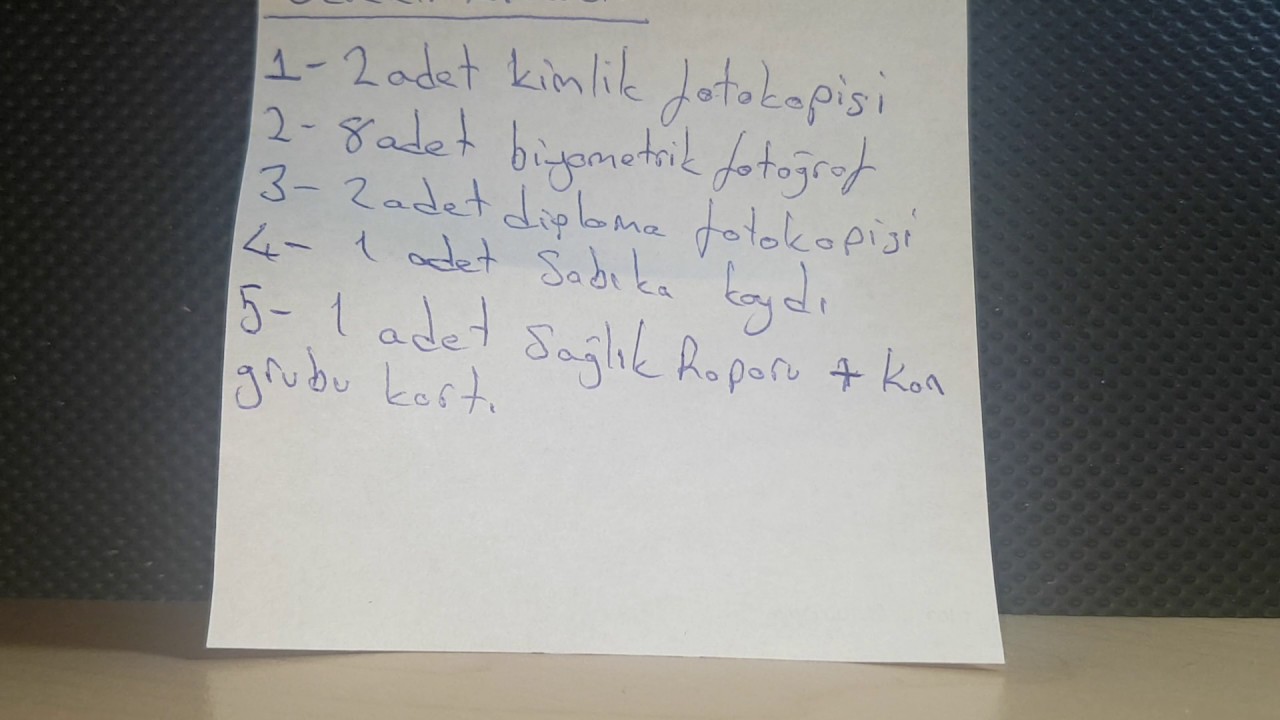 1- 2 adet kimlik fotokopisi
2- 8 adet biyometrik fotoğraf
3- 2 adet diploma fotokopisi
4- 1 adet Sabıka kaydı
5- 1 adet Sağlık Raporu + Kan
grubu kart.